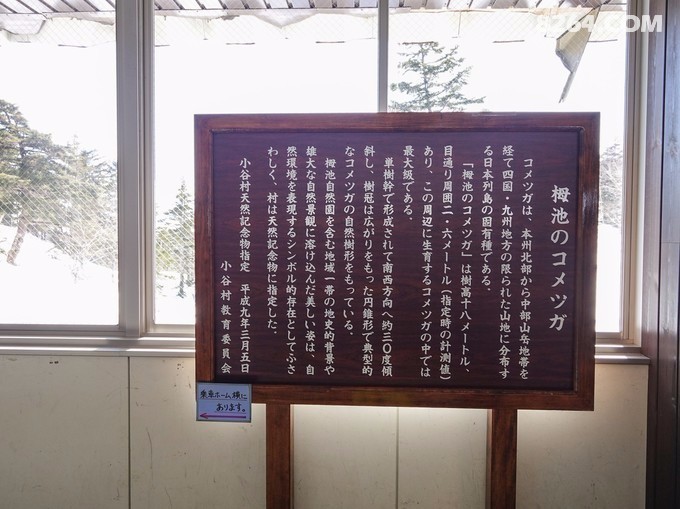 栂池のコメツガ
コメツガは、本州北部から中部山岳地帯を
経て四国・九州地方の限られた山地に分布す
る日本列島の固有種である。
「栂池のコメツガ」は樹高十八メートル、
目通り周囲二・六メートル（指定時の計測値）
あり、この周辺に生育するコメツガの中では
最大級である。
単樹幹で形成されて南西方向へ約三〇度傾
斜し、樹冠は広がりをもった円錐形で典型的
なコメツガの自然樹形をもっている。
栂池自然園を含む地域一帯の地史的背景や
雄大な自然景観に溶け込んだ美しい姿は、自
然環境を表現するシンボル的存在としてふさ
わしく、村は天然記念物に指定した。
小谷村天然記念物指定 平成九年三月五日
小谷村教育委員会
乗車ホーム横に
あります。
8264.COM